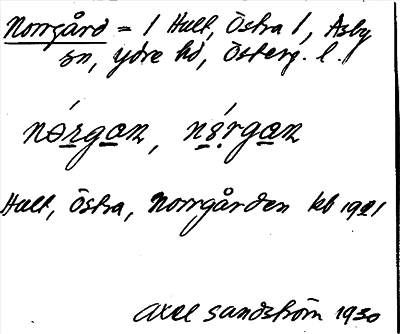 Norrgård = / Hult, Östra /, Asby
sn, Ydre hd, Österg. l.
Hult, Östra, Norrgården kb 1921
Axel Sandström 1930